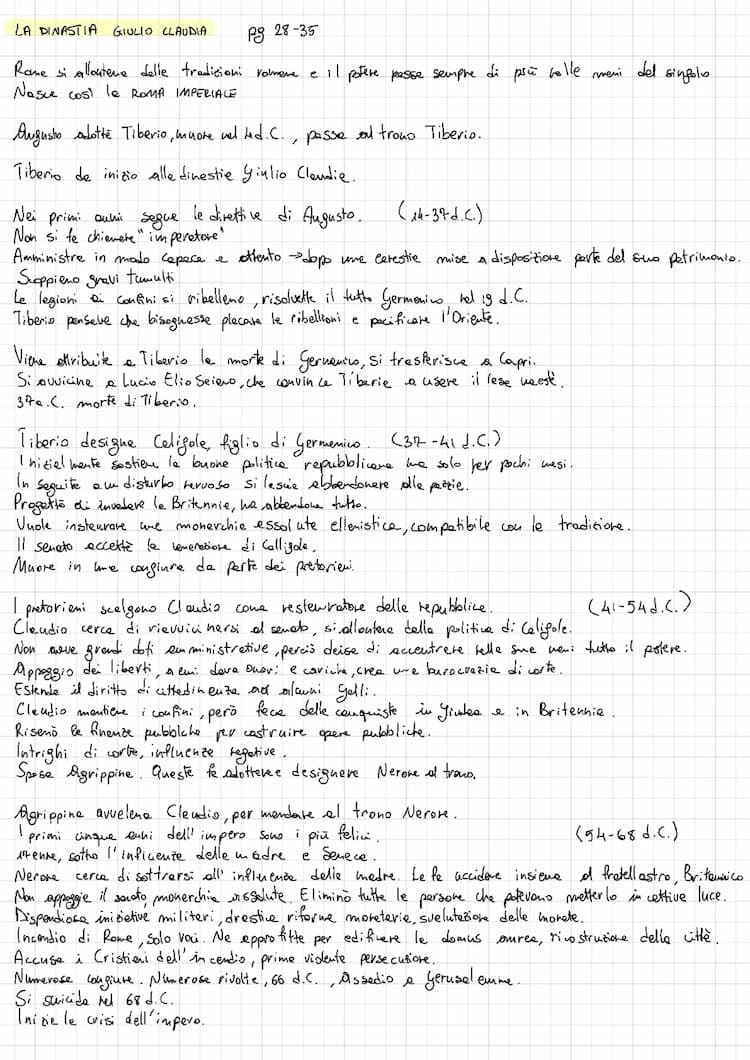 LA DINASTIA GIULIO CLAUDIA pg 28-35
Roma si allontana dalle tradizioni romane e il potere passa sempre di più nelle mani del singolo
Nasce così la ROMA IMPERIALE
Augusto adotta Tiberio, muore nel 14 d.C., passa al trono Tiberio.
Tiberio da inizio alla dinastia Giulio Claudia.
Nei primi anni segue le direttive di Augusto. (14-37 d.C.)
Non si fa chiamare "imperatore"
Amministra in modo capace e attento → dopo una carestia mise a disposizione parte del suo patrimonio.
Scoppiano gravi tumulti
Le legioni ai confini si ribellano, risolvette il tutto Germanico nel 19 d.C.
Tiberio pensava che bisognasse placare le ribellioni e pacificare l'Oriente.
Viene attribuita a Tiberio la morte di Germanico, si trasferisce a Capri.
Si avvicina a Lucio Elio Seiano, che convince Tiberio a usare il lesa maestà.
37 a.C. morte di Tiberio.
Tiberio designa Caligola, figlio di Germanico. (37-41 d.C.)
Inizialmente sostiene la buona politica repubblicana ma solo per pochi mesi.
In seguito a un disturbo nervoso si lascia abbandonare alla pazzia.
Progetta di invadere la Britannia, ma abbandona tutto.
Vuole instaurare una monarchia assoluta ellenistica, compatibile con la tradizione.
Il senato accetta la venerazione di Calligola.
Muore in una congiura da parte dei pretoriani.
I pretoriani scelgono Claudio come restauratore della repubblica. (41-54 d.C.)
Claudio cerca di riavvicinarsi al senato, si allontana dalla politica di Caligola.
Non aveva grandi doti amministrative, perciò decise di accentrare nelle sue mani tutto il potere.
Appoggio dei liberti, a cui dava onori e cariche, crea una burocrazia di corte.
Estende il diritto di cittadinanza ad alcuni Galli.
Claudio mantiene i confini, però fece delle conquiste in Giudea e in Britannia.
Risanò le finanze pubbliche per costruire opere pubbliche.
Intrighi di corte, influenze negative.
Sposa Agrippina. Questa fa adottare e designare Nerone al trono.
Agrippina avvelena Claudio, per mandare al trono Nerone.
I primi cinque anni dell'impero sono i più felici. (54-68 d.C.)
17enne, sotto l'influenza della madre e Seneca.
Nerone cerca di sottrarsi all'influenza della madre. La fa uccidere insieme al fratellastro, Britannico
Non appoggia il senato, monarchia assoluta. Eliminò tutte le persone che potevano metterlo in cattiva luce.
Dispendiose iniziative militari, drastica riforma monetaria, svalutazione delle monete.
Incendio di Roma, solo voci. Ne approfitta per edificare la domus aurea, ricostruzione della città.
Accusa i Cristiani dell'incendio, prima violenta persecuzione.
Numerose congiure. Numerose rivolte, 66 d.C., Assedio a Gerusalemme.
Si suicida nel 68 d.C.
Inizia la crisi dell'impero.